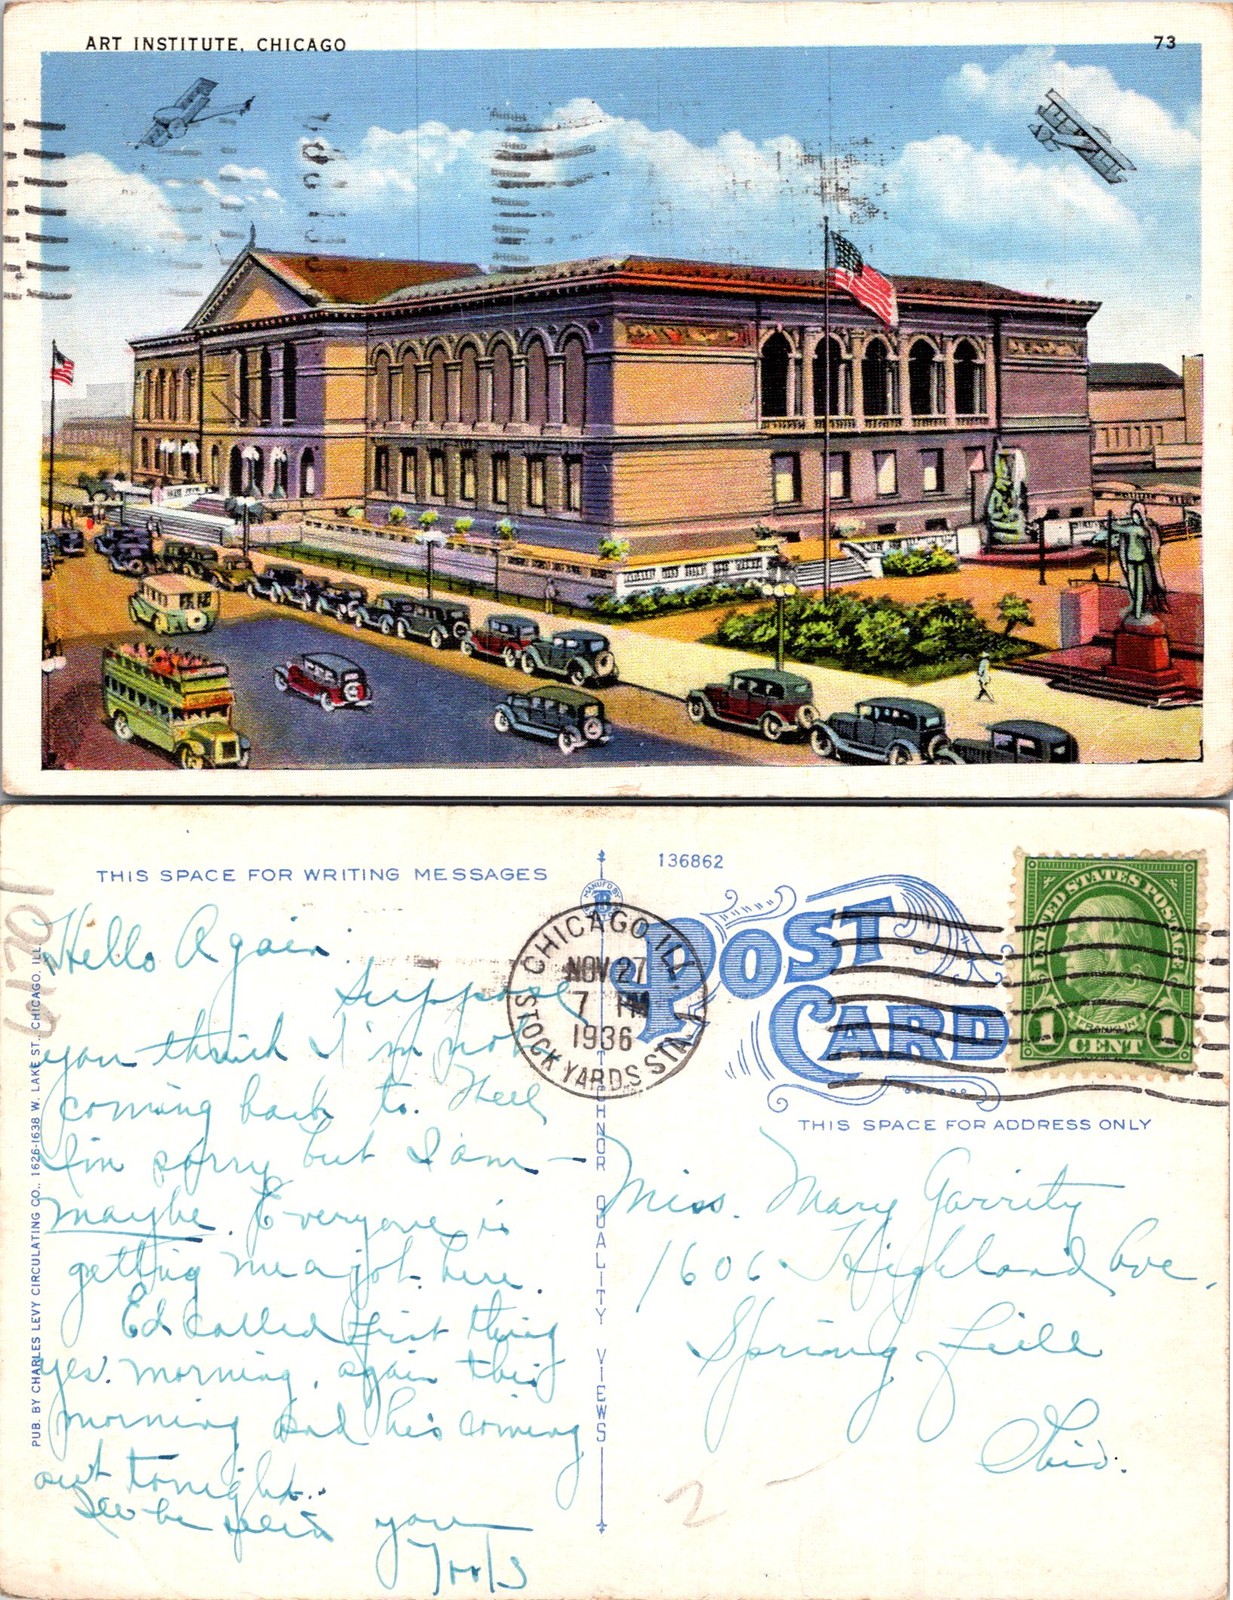 ART INSTITUTE, CHICAGO
73
THIS SPACE FOR WRITING MESSAGES
136862
MANUF'D BY
POST
CARD
UNITED STATES POSTAGE
FRANKLIN
1 CENT 1
CHICAGO, ILL.
NOV 27
7 PM
1936
STOCK YARDS STA.
THIS SPACE FOR ADDRESS ONLY
61701
Hello Again.
Suppose
you think I'm not
coming back to. Well
I'm sorry but I am —
maybe. Everyone is
getting me a job here.
Ed called first thing
yes. morning, again this
morning and he's coming
out tonight..
be seein you
Toots
Miss. Mary Garrity
1606 Highland Ave.
Springfield
Ohio.
2 -
PUB. BY CHARLES LEVY CIRCULATING CO., 1626-1638 W. LAKE ST., CHICAGO, ILL.
QUALITY VIEWS